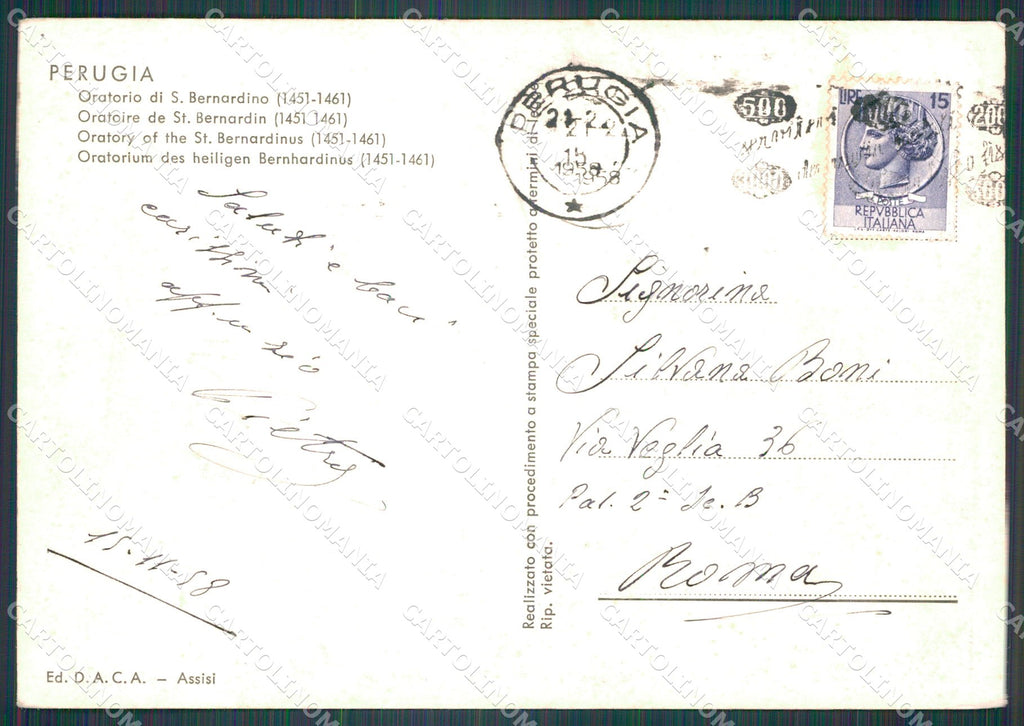 PERUGIA
Oratorio di S. Bernardino (1451-1461)
Oratoire de St. Bernardin (1451-1461)
Oratory of the St. Bernardinus (1451-1461)
Oratorium des heiligen Bernhardinus (1451-1461)
Saluti e baci
15-11-58
Ed. D.A.C.A. – Assisi
Realizzato con procedimento a stampa speciale protetto a termini di
Rip. vietata.
PERUGIA
15
1958
500
LIRE 15
POSTE
REPVBBLICA
ITALIANA
Signorina
Silvana Boni
Via Veglia 36
Pal. 2= Sc. B
Roma
CARTOLINOMANIA